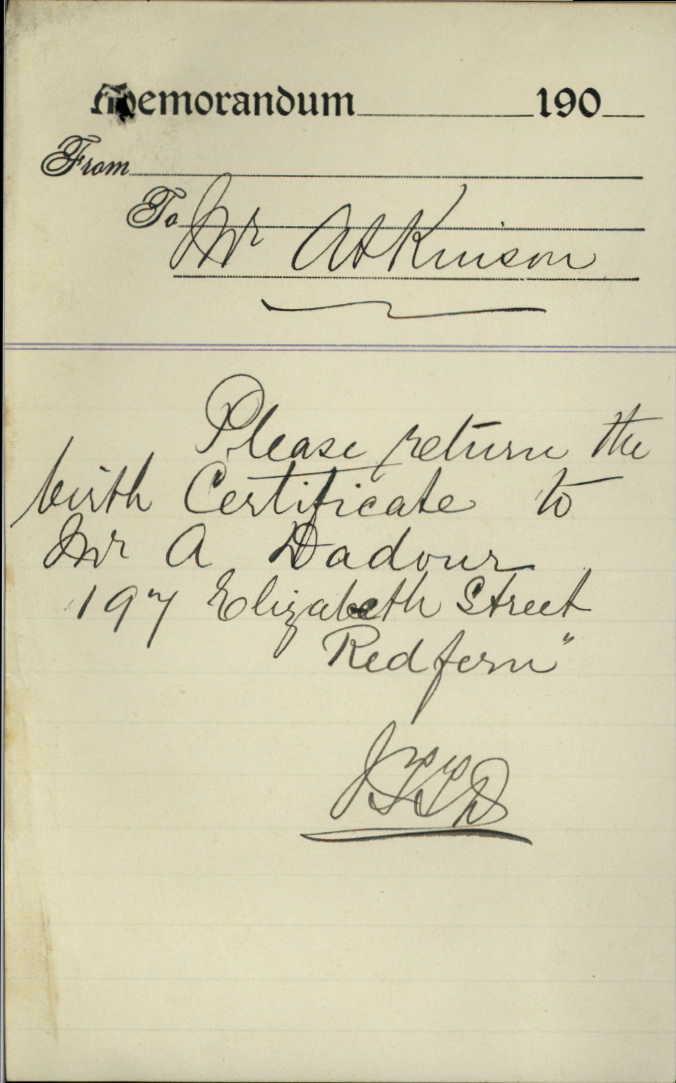 Memorandum 190
From
To
Mr Atkinson
Please return the
birth Certificate to
Mr A Dadour
197 Elizabeth Street
Redfern"